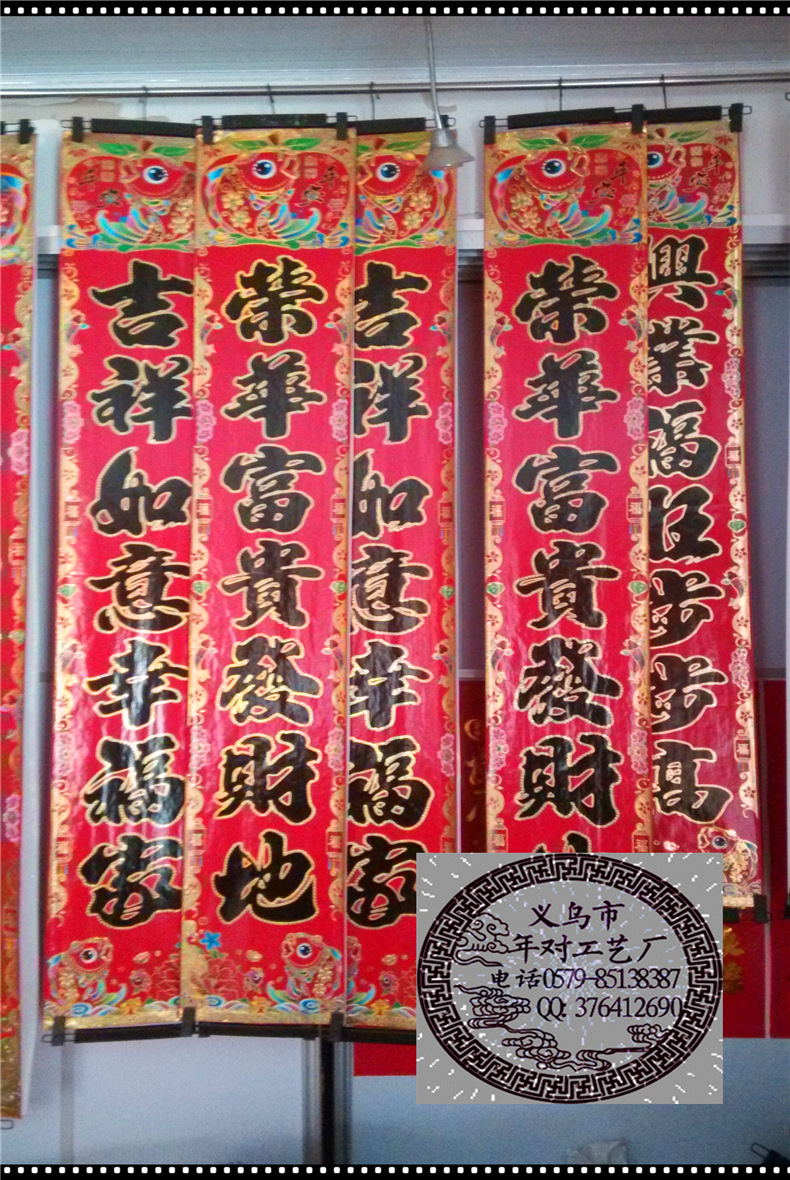 吉祥如意幸福家
榮華富貴發財地
吉祥如意幸福家
榮華富貴發財
興業福旺步步高
义乌市
年对工艺厂
电话0579-85138387
QQ: 376412690